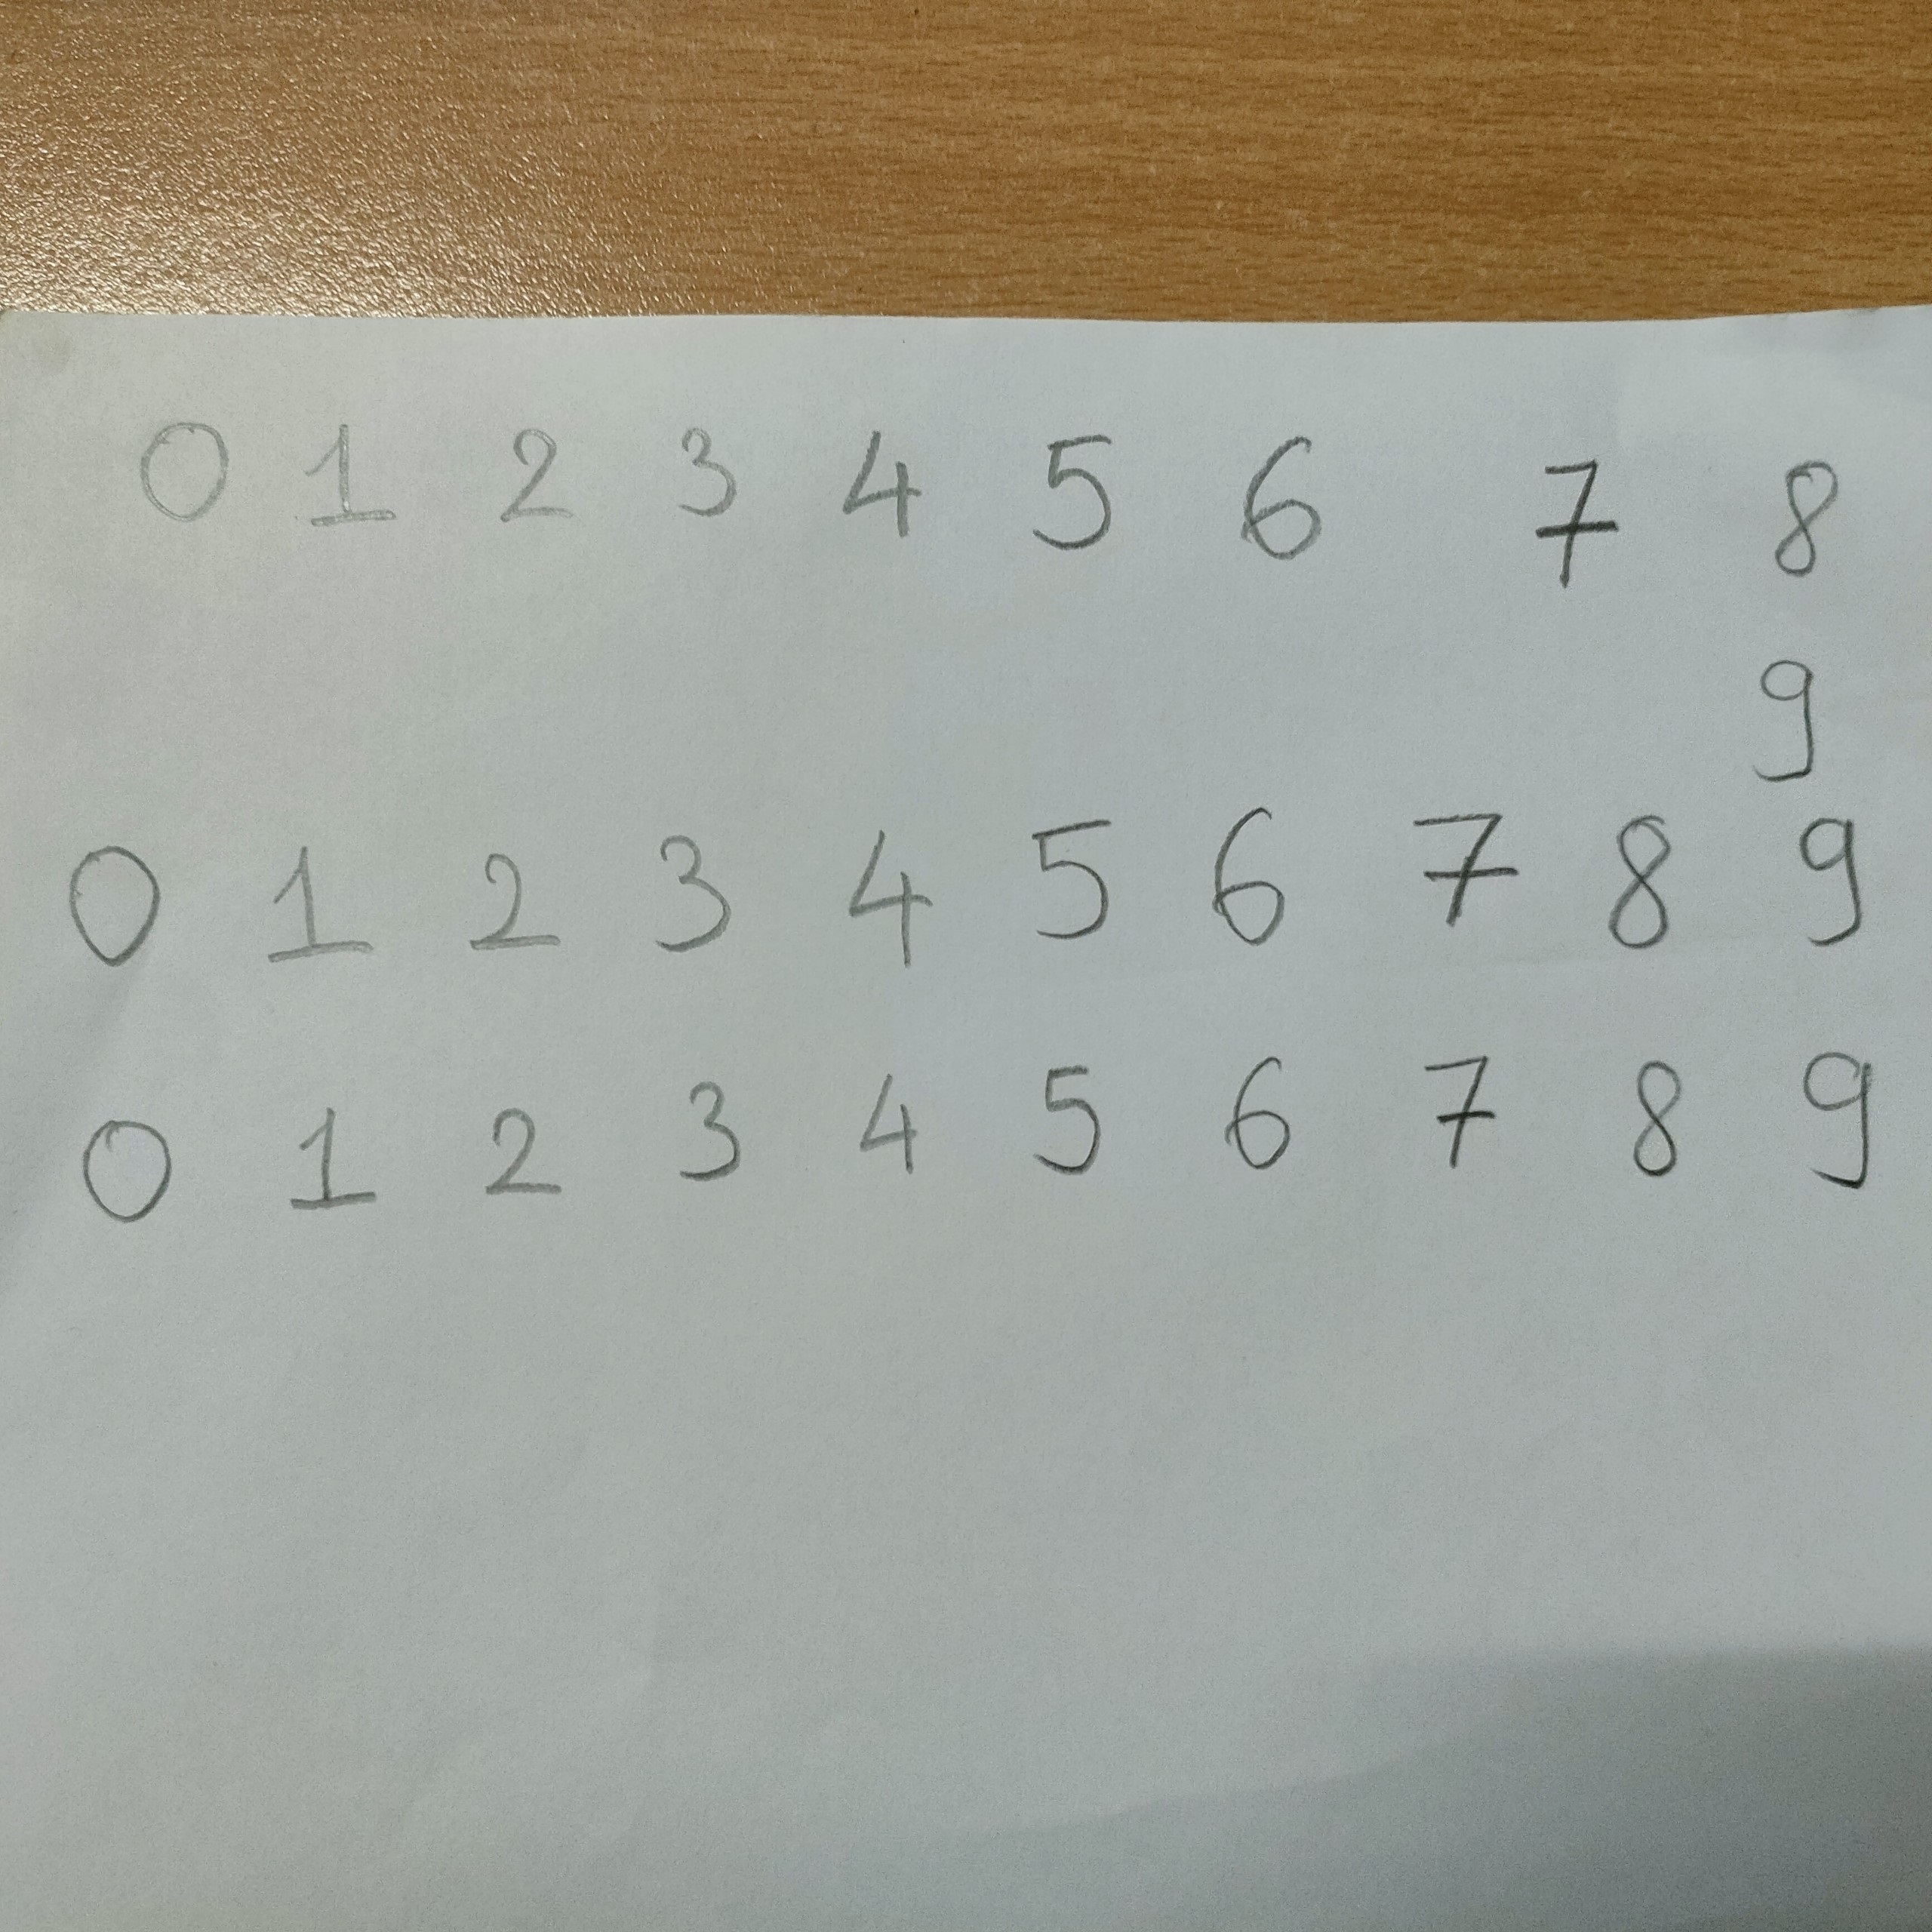 0 1 2 3 4 5 6 7 8
9
0 1 2 3 4 5 6 7 8 9
0 1 2 3 4 5 6 7 8 9